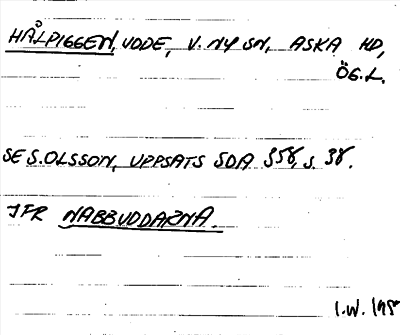 HÅLPIGGEN, UDDE, V. NY SN, ASKA HD,
ÖG. L.
SE S. OLSSON, UPPSATS SOA 358, S. 38.
JFR NABBUDDARNA.
I.W.